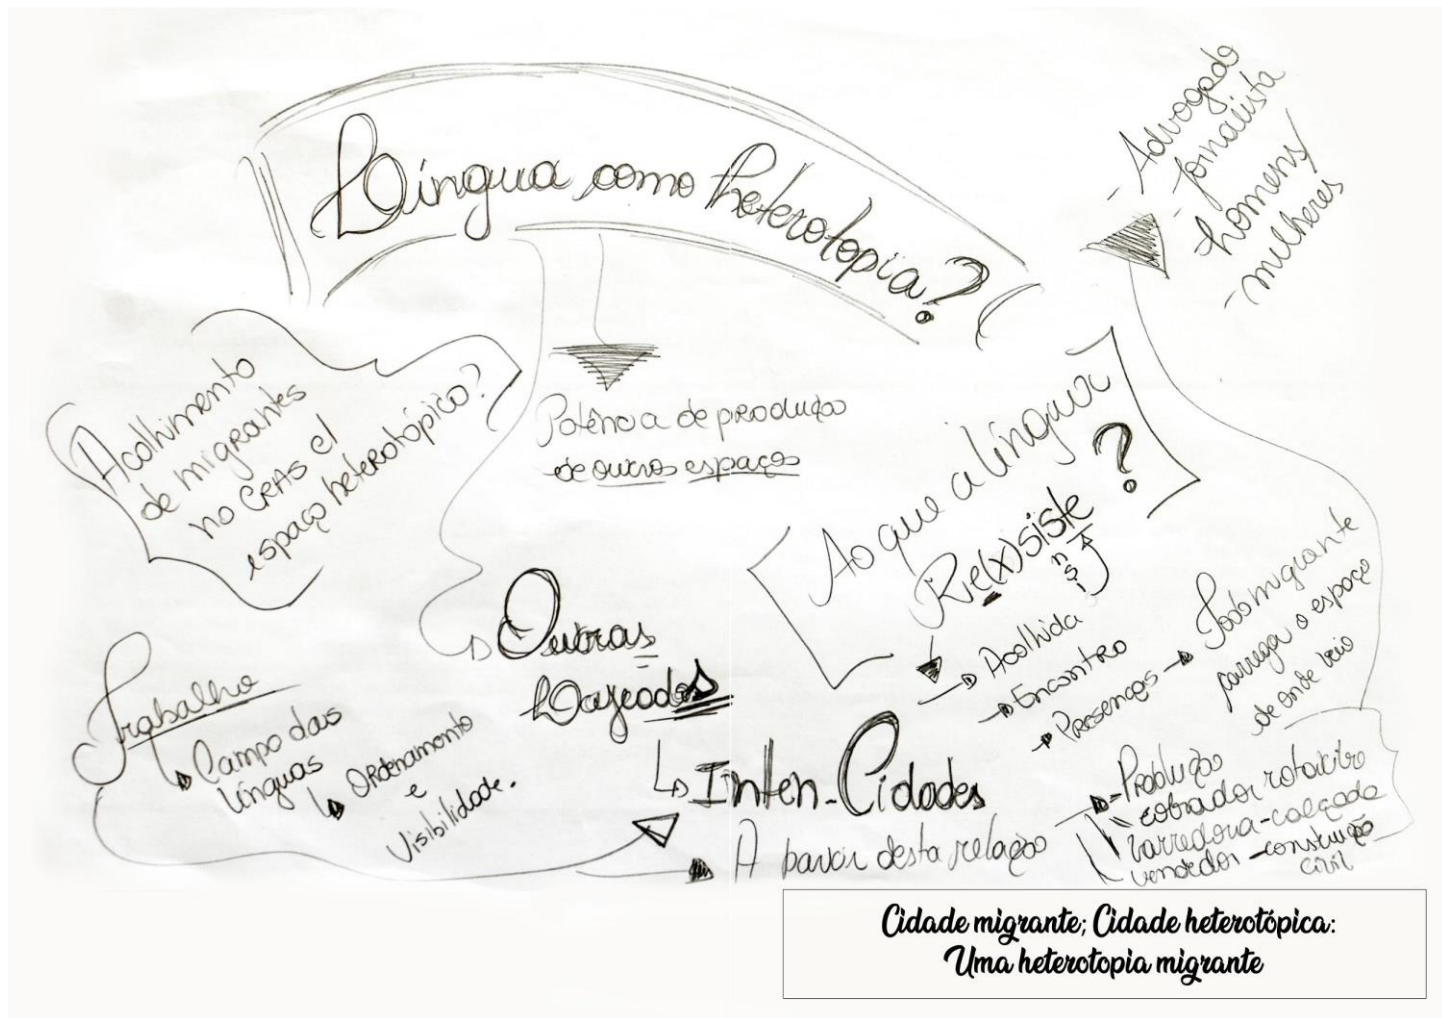 Língua como heterotopia?
- Advogado
- jornalista
- homens/
- mulheres
Acolhimento
de migrantes
no CRAS é
espaço heterotópico?
Potência de produção
de outros espaços
Ao que a língua
Re(x)siste
?
Acolhida
Encontro
Presenças
Todo migrante
carrega o espaço
de onde veio
Outras
Trabalho
Campo das
línguas
Ordenamento
e
Visibilidade.
Inten-Cidades
A partir desta relação
Produção
cobrador rotativo
varredora-calçada
vendedor-construção
civil
Cidade migrante; Cidade heterotópica:
Uma heterotopia migrante